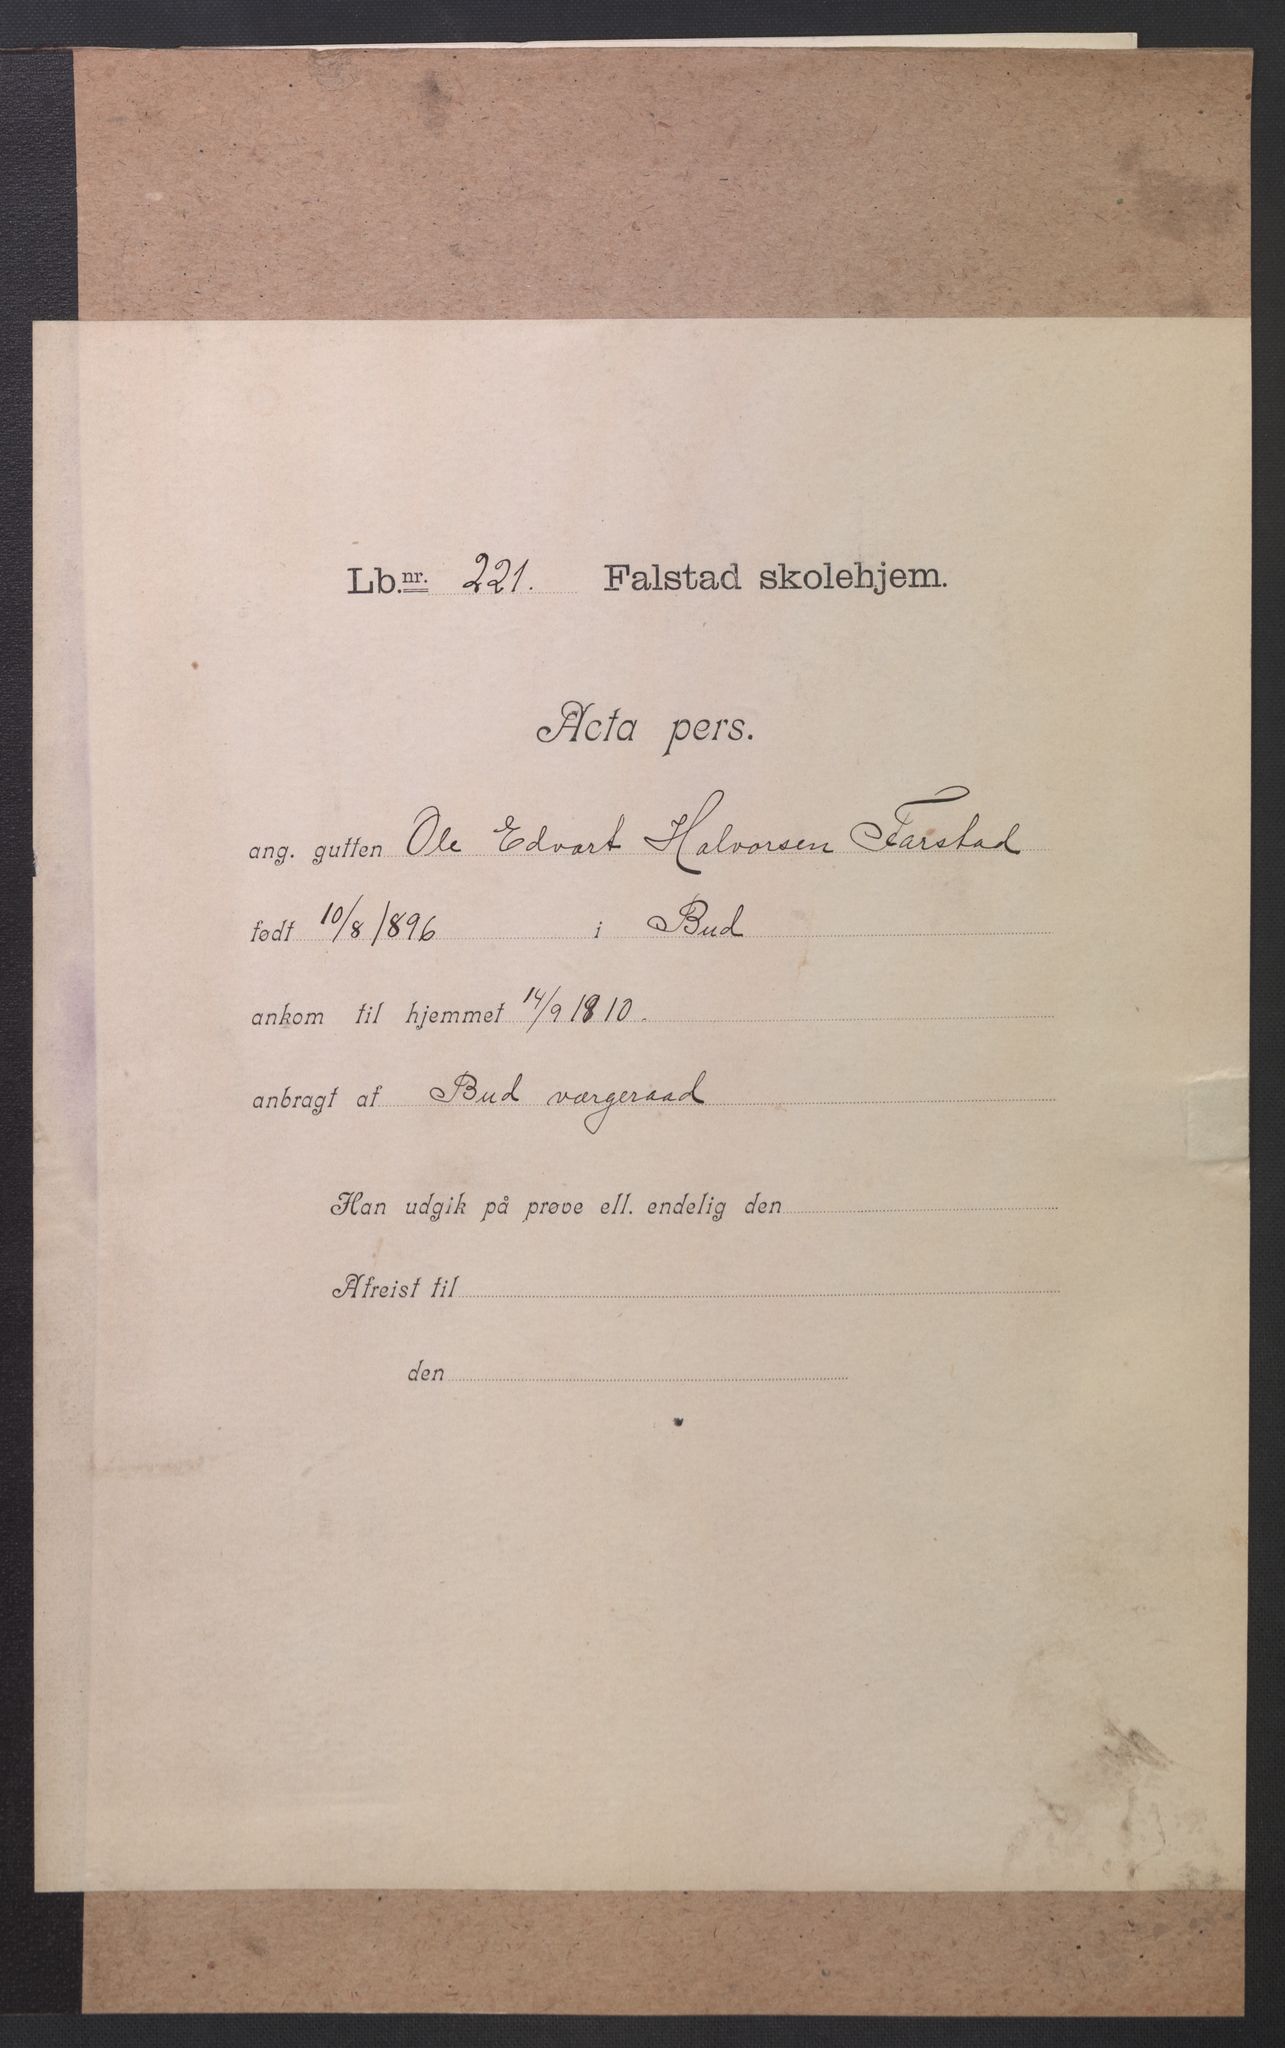 Lb.nr. 221. Falstad skolehjem.
Acta pers.
ang. gutten Ole Edvart Halvorsen Farstad
født 10/8 1896 i Bud
ankom til hjemmet 14/9 1810.
anbragt af Bud værgeraad
Han udgik på prøve ell. endelig den
Afreist til
den